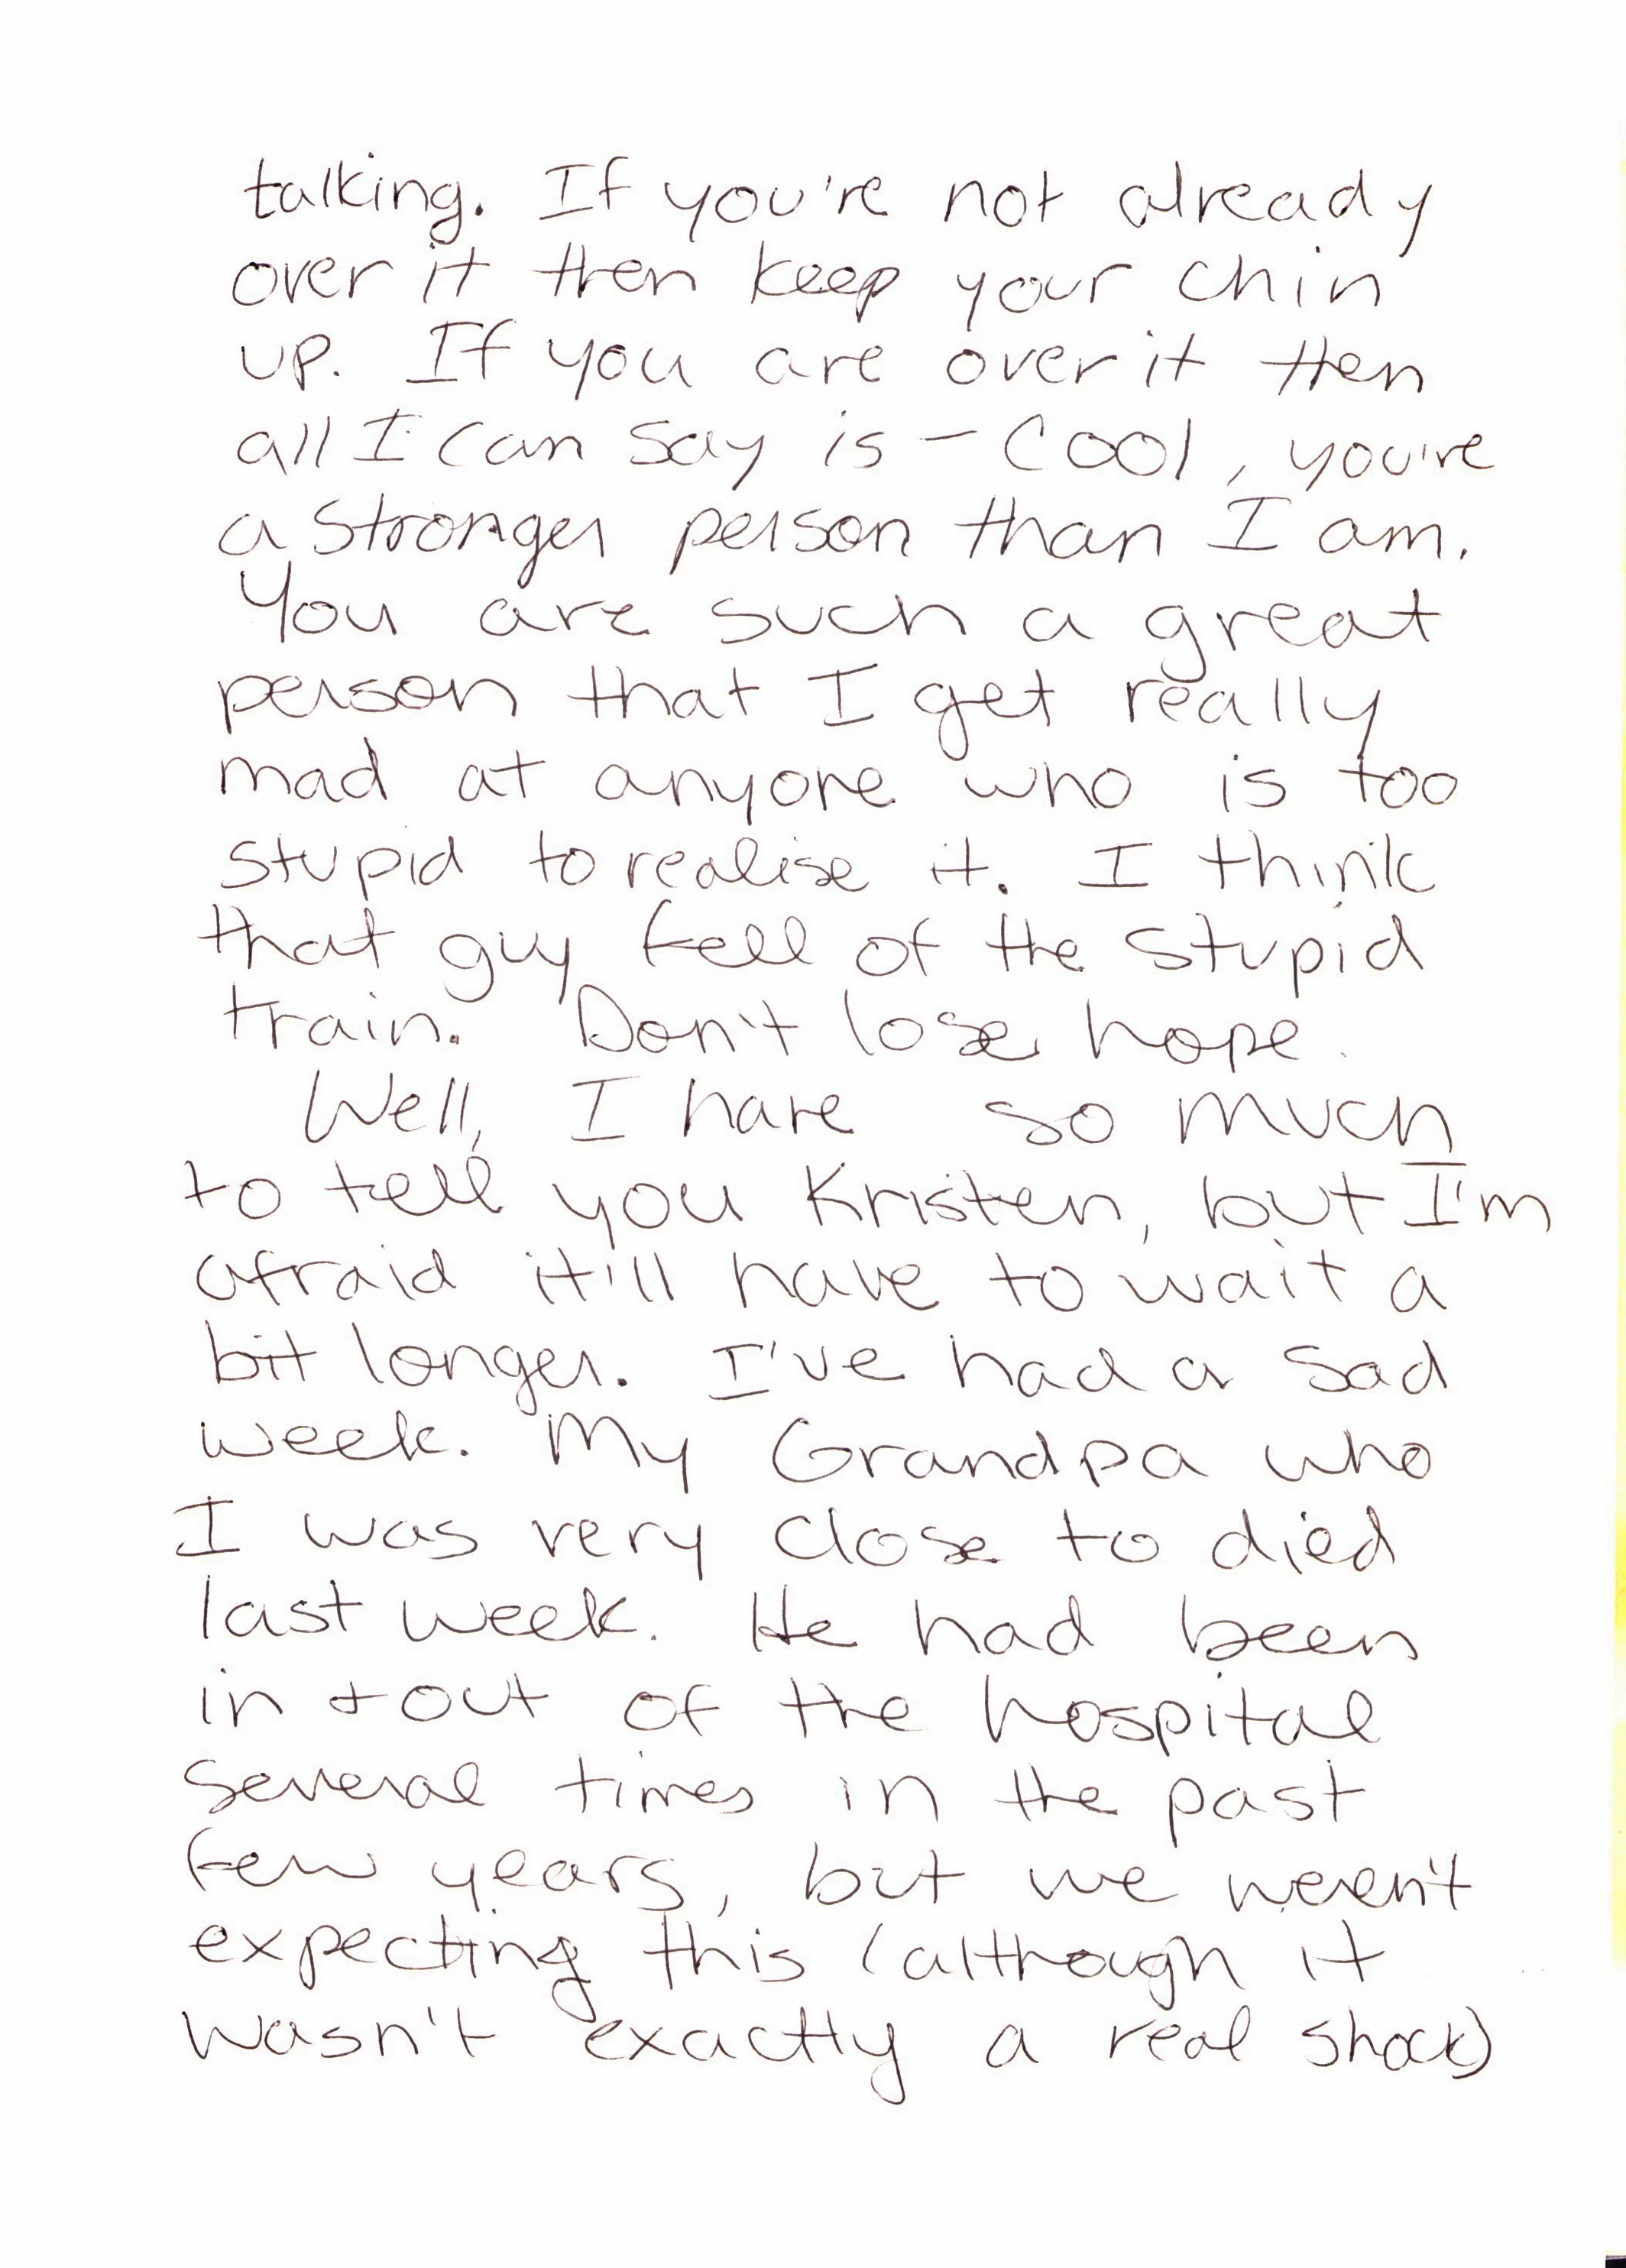 talking. If you're not already
over it then keep your chin
up. If you are over it then
all I can say is - Cool, you're
a stronger person than I am.
You are such a great
person that I get really
mad at anyone who is too
stupid to realise it. I think
that guy fell of the stupid
train. Don't lose hope.
Well, I have so much
to tell you Kristen, but I'm
afraid it'll have to wait a
bit longer. I've had a sad
week. My Grandpa who
I was very close to died
last week. He had been
in + out of the hospital
several times in the past
few years, but we weren't
expecting this (although it
wasn't exactly a real shock)